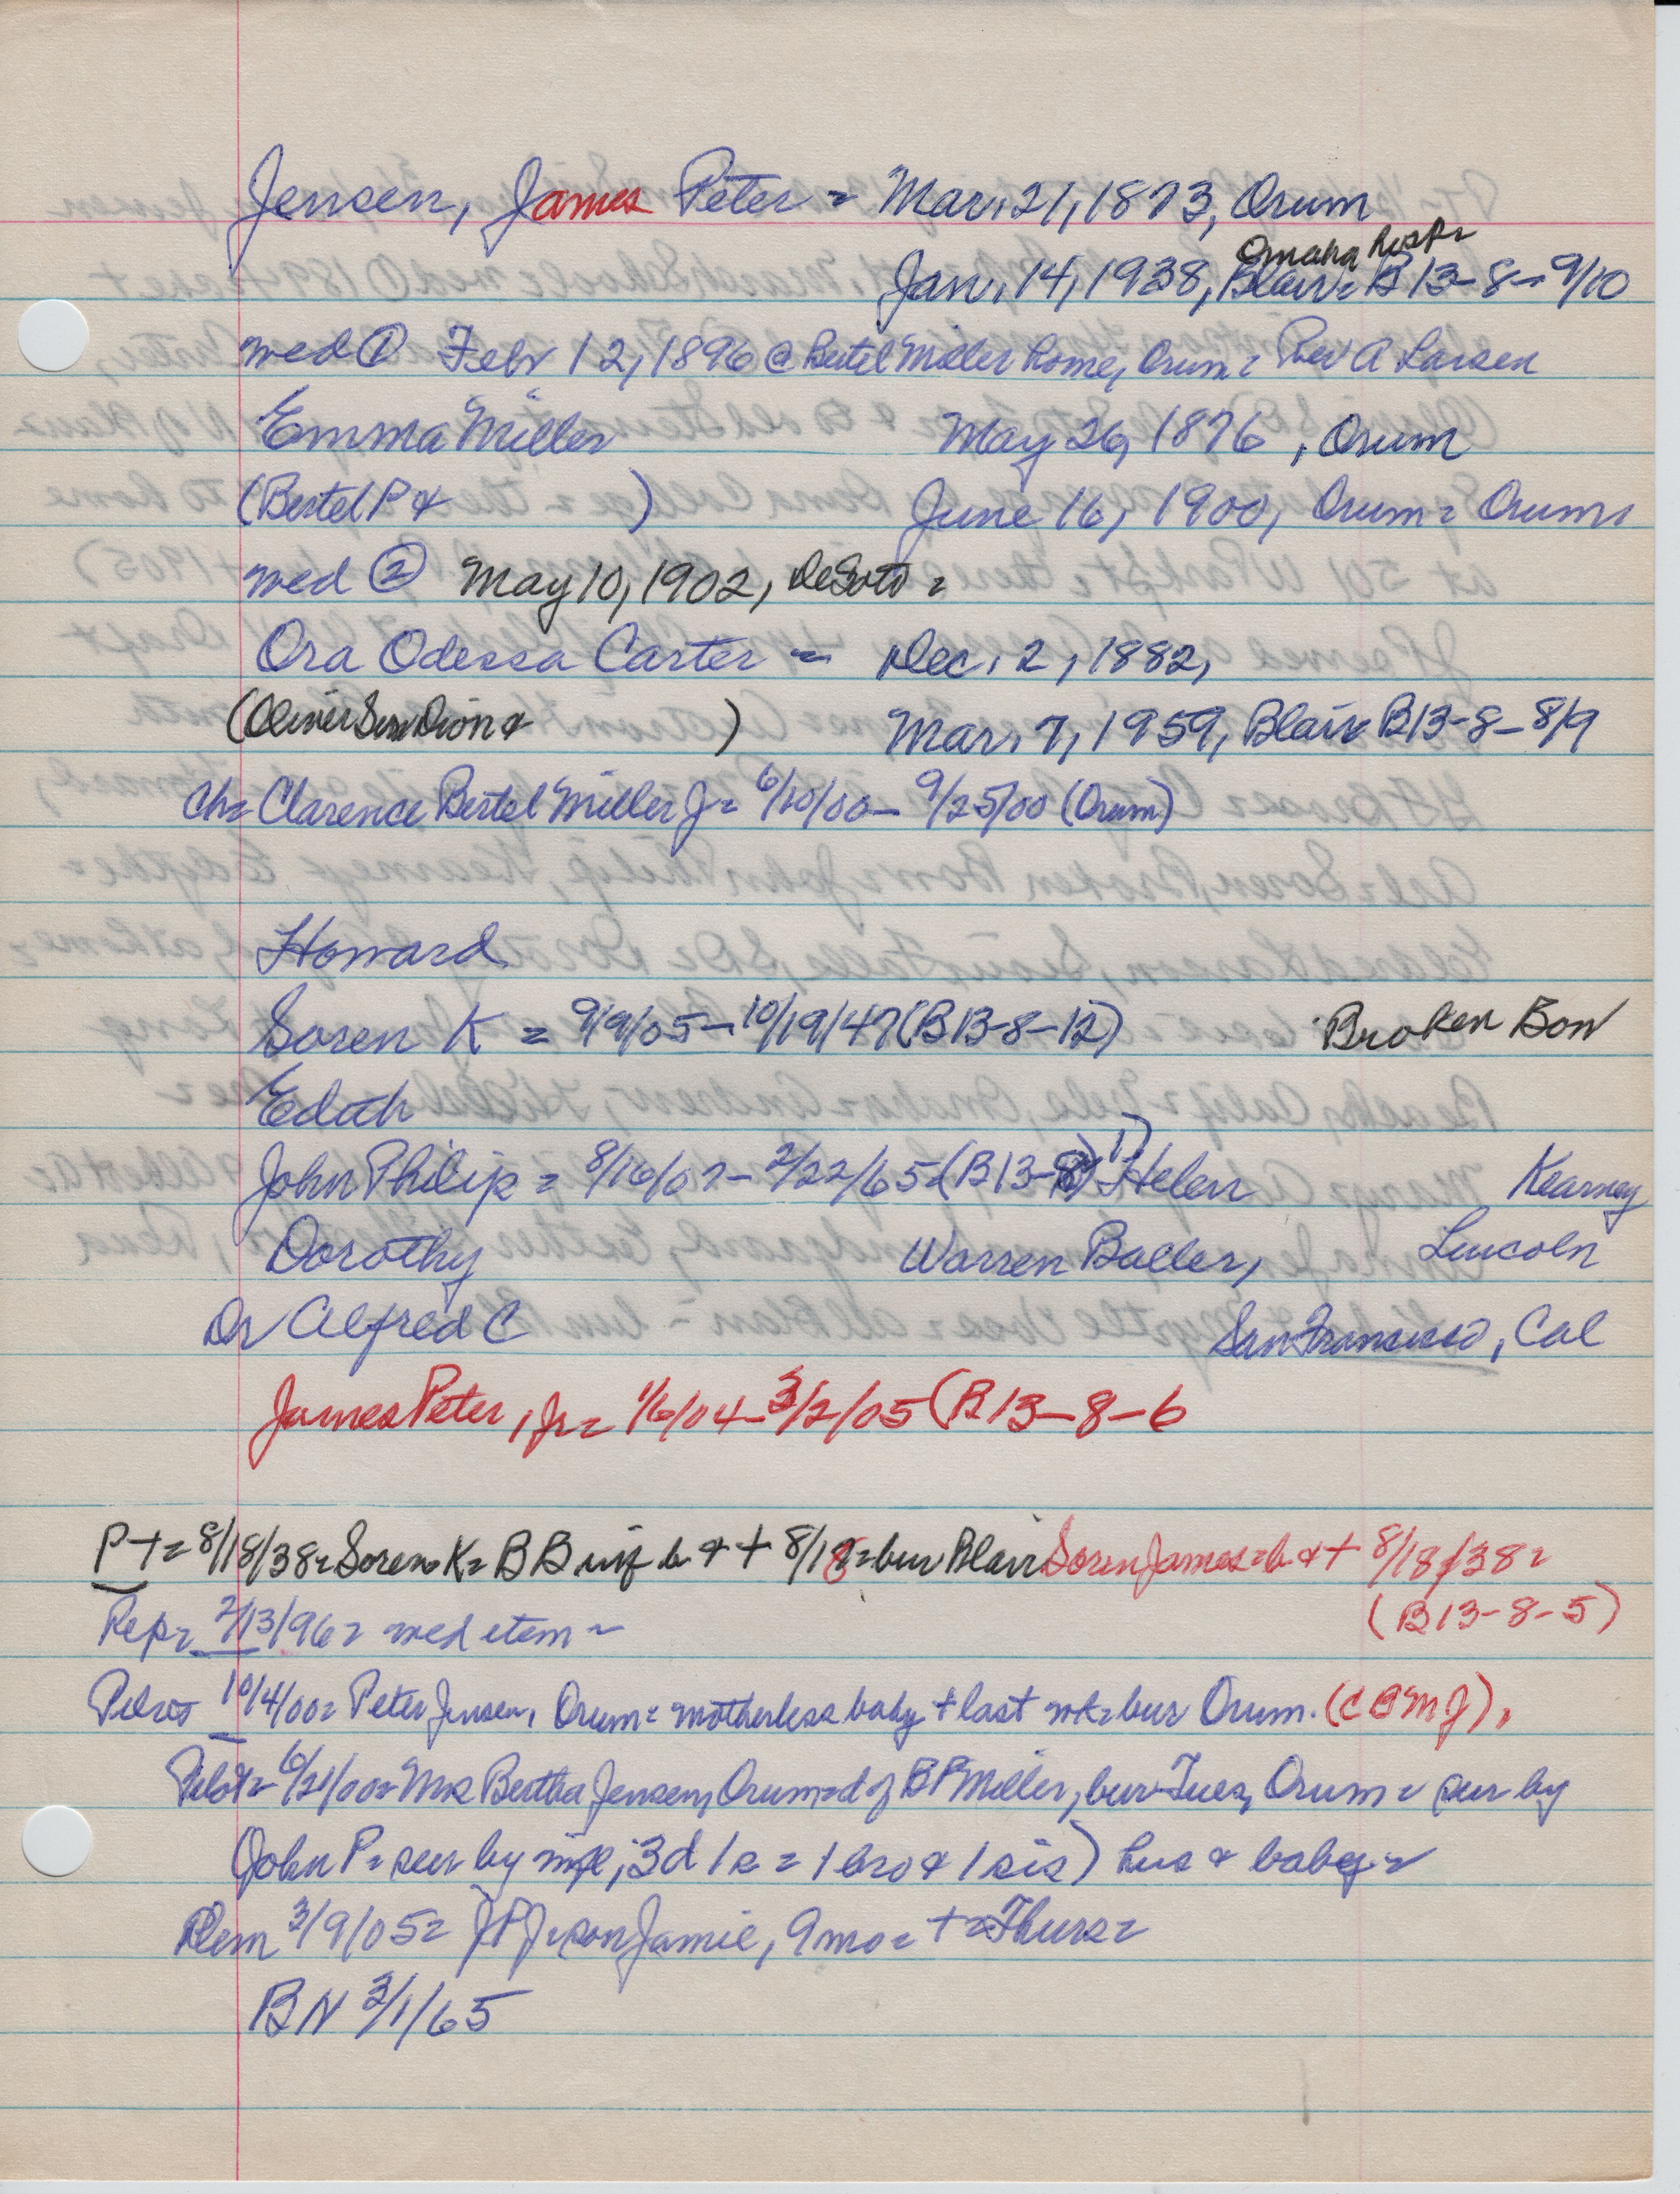 Jensen, James Peter = Mar. 21, 1873, Orum
Omaha Hosp =
Jan. 14, 1938, Blair = B13-8-9/10
med ① Febr 12, 1896 @ Bertel Miller home, Orum = Rev A Larsen
Emma Miller May 26, 1876, Orum
(Bertel P & ) June 16, 1900, Orum = Orum
med ② May 10, 1902, DeSoto =
Ora Odessa Carter = Dec. 2, 1882,
(Oliver & ) Mar. 7, 1959, Blair B13-8-8/9
Ch = Clarence Bertel Miller J = 6/10/00 - 9/25/00 (Orum)
Howard
Soren K = 9/9/05 - 10/19/47 (B13-8-12) Broken Bow
Edith
John Philip = 8/16/07 - 2/22/65 = (B13-8) Helen Kearney
Dorothy Warren Baller, Lincoln
Dr Alfred C San Francisco, Cal
James Peter, Jr = 1/6/04 - 3/2/05 (B13-8-6
PT = 8/18/38 = Soren K = BB inf b & + 8/18 = bur Blair Soren James = b & + 8/18/38 =
(B13-8-5)
Rep = 2/13/96 = med item =
Pilot 10/4/00 = Peter Jensen, Orum = motherless baby + last wk = bur Orum. (CBMJ).
Pilot = 6/21/00 = Mrs Bertha Jensen, Orum = d of BP Miller, bur Tues, Orum = sur by
(John P = sur by 3d 1s = 1 bro & 1 sis) hus & baby =
Dem 3/9/05 = JPJ = son Jamie, 9 mo = + = Thurs =
BN 3/1/65